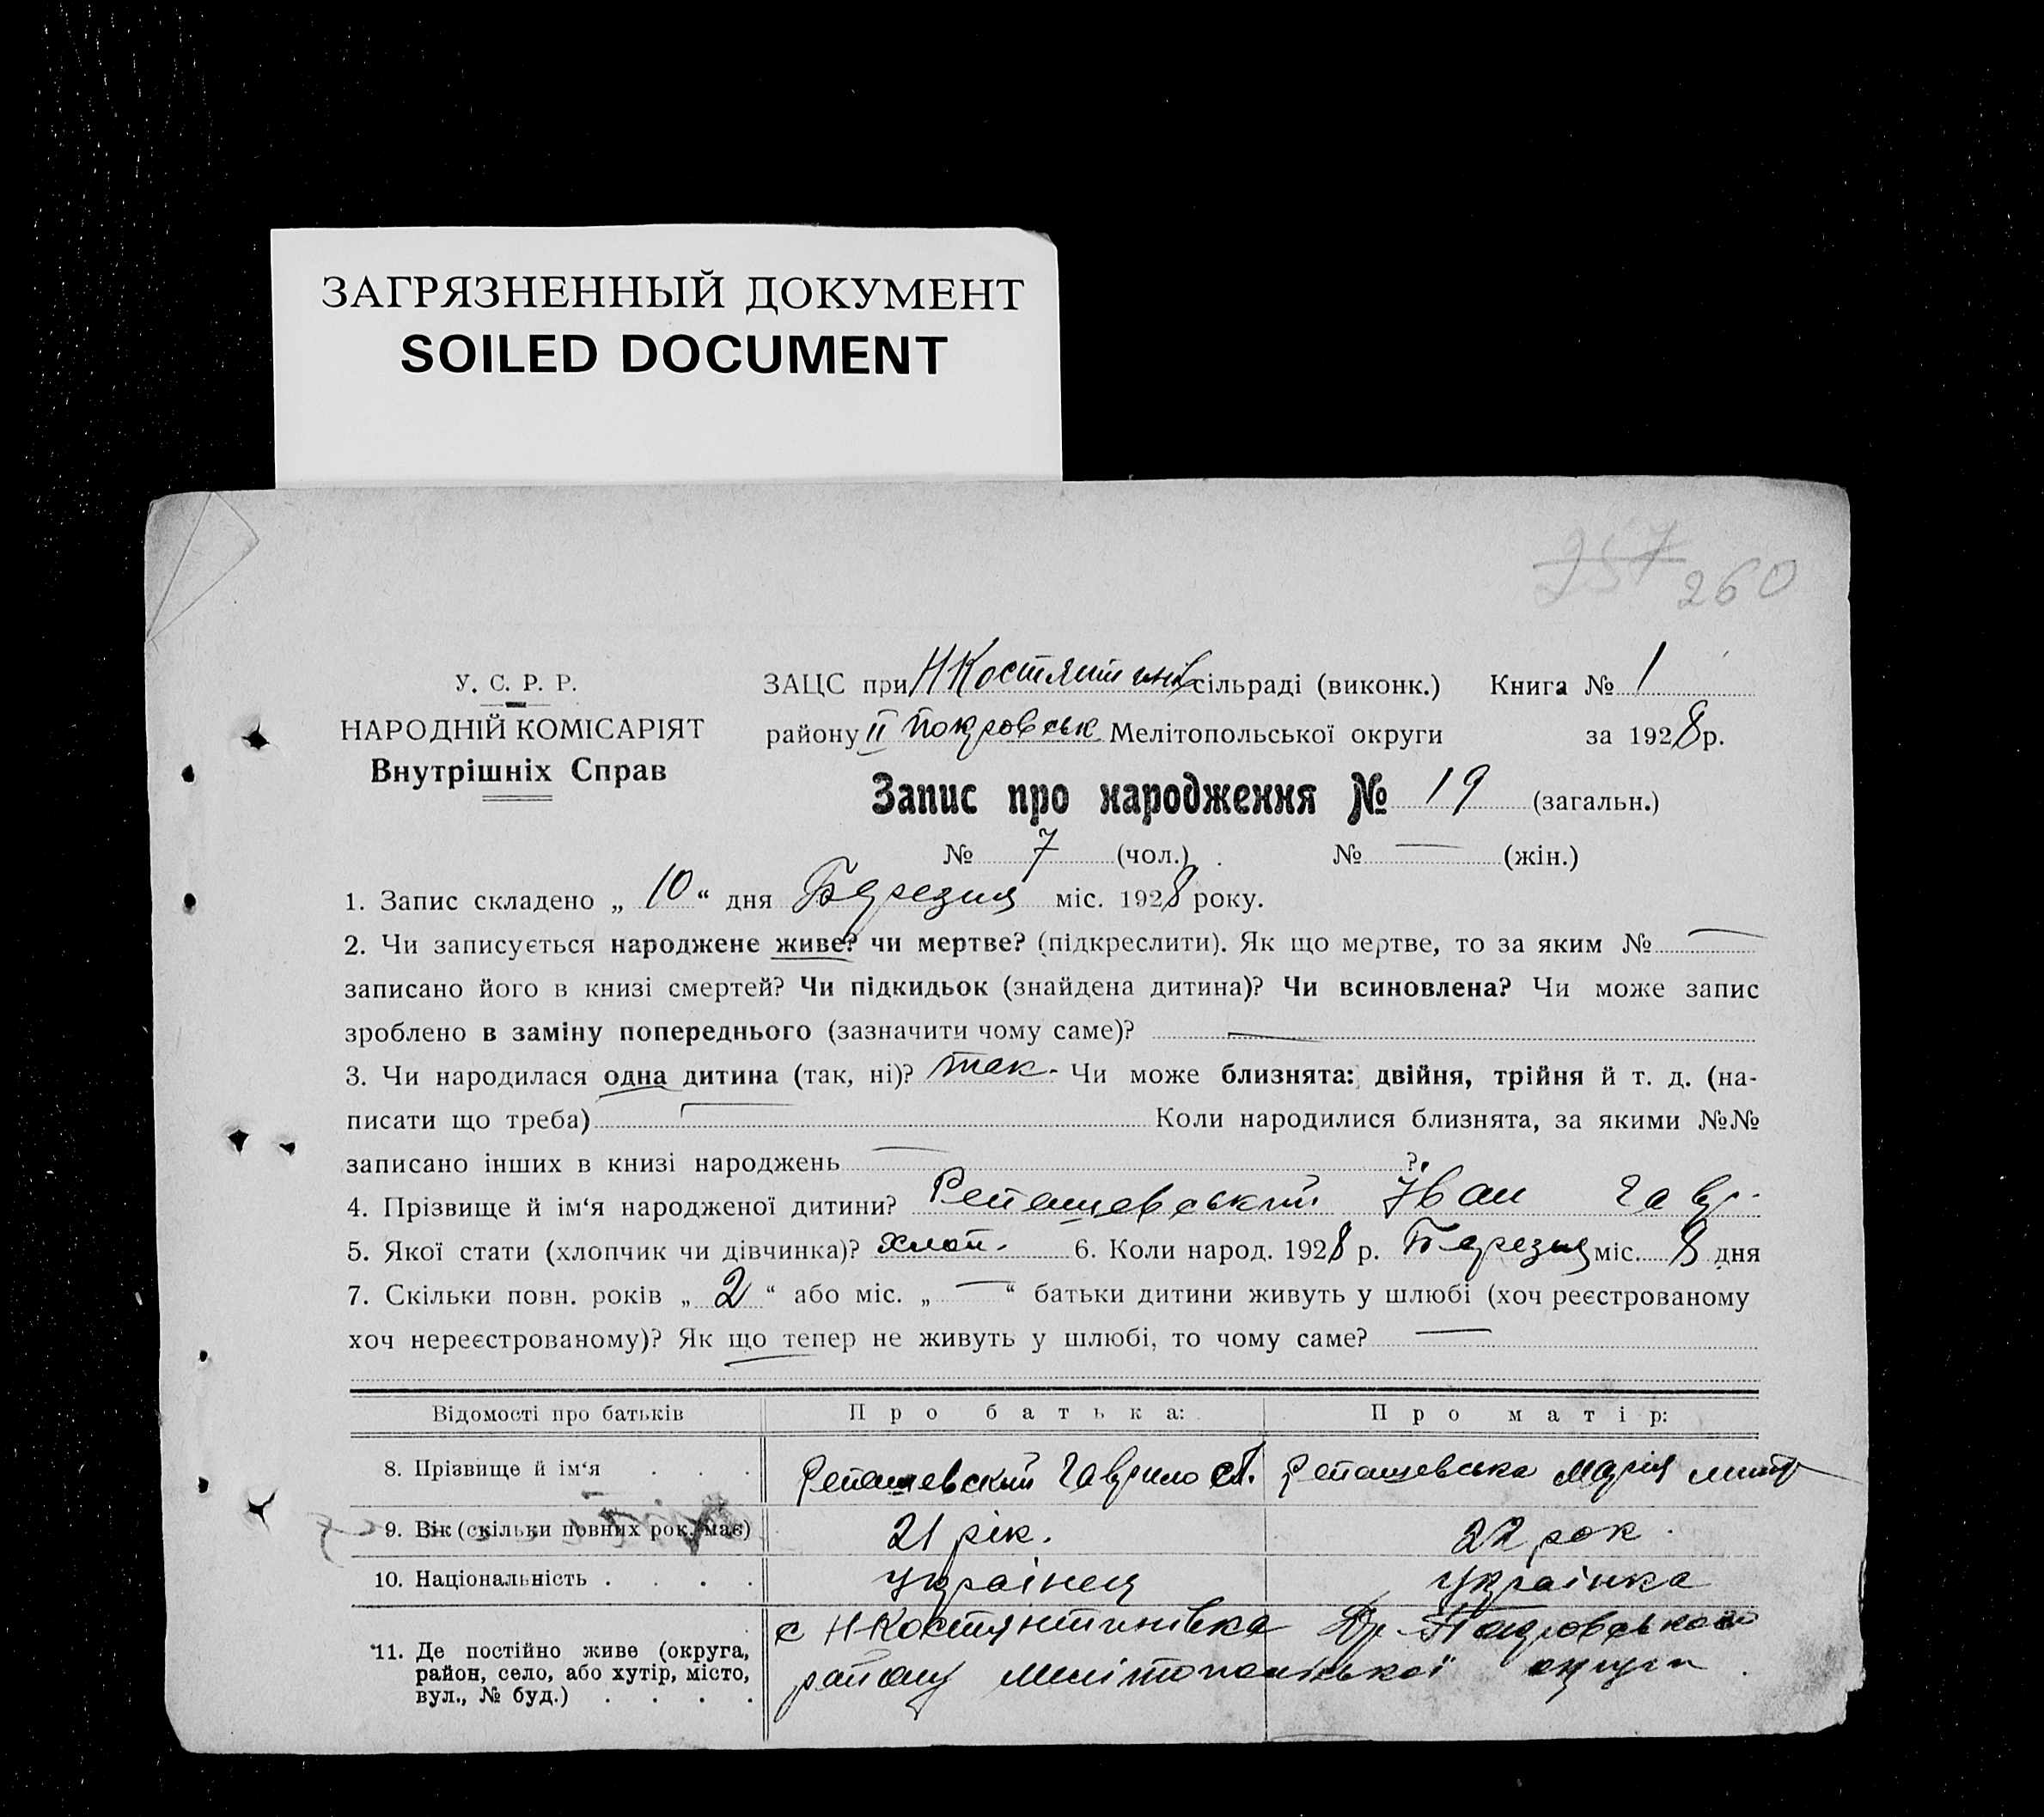 ЗАГРЯЗНЕННЫЙ ДОКУМЕНТ
SOILED DOCUMENT
257 260
У. С. Р. Р.
НАРОДНІЙ КОМІСАРІЯТ
Внутрішніх Справ
ЗАЦС при Н Костянтинів сільраді (виконк.) Книга № 1
району II Покровськ Мелітопольської округи за 1928 р.
Запис про народження № 19 (загальн.)
№ 7 (чол.) . № — (жін.)
1. Запис складено „ 10 “ дня Березня міс. 1928 року.
2. Чи записується народжене живе? чи мертве? (підкреслити). Як що мертве, то за яким № —
записано його в книзі смертей? Чи підкидьок (знайдена дитина)? Чи всиновлена? Чи може запис
зроблено в заміну попереднього (зазначити чому саме)? —
3. Чи народилася одна дитина (так, ні)? так. Чи може близнята: двійня, трійня й т. д. (на-
писати що треба) — Коли народилися близнята, за якими №№
записано інших в книзі народжень — ?
4. Прізвище й ім‘я народженої дитини? Репашевський Іван Гавр.
5. Якої стати (хлопчик чи дівчинка)? хлоп. 6. Коли народ. 1928 р. Березня міс. 8 дня
7. Скільки повн. років „ 2 “ або міс. „ — “ батьки дитини живуть у шлюбі (хоч реєстрованому
хоч нереєстрованому)? Як що тепер не живуть у шлюбі, то чому саме? —
Відомості про батьків Про батька: Про матір:
8. Прізвище й ім‘я . . . Репашевский Гаврило Репашевська Марія
9. Вік (скільки повних рок. має) 21 рік. 22 рок.
10. Національність . . . . Українец Українка
11. Де постійно живе (округа,
район, село, або хутір, місто,
вул., № буд.) . . . .
с Н-Костянтинівка Др-Покровського
району Мелітопольської округи .